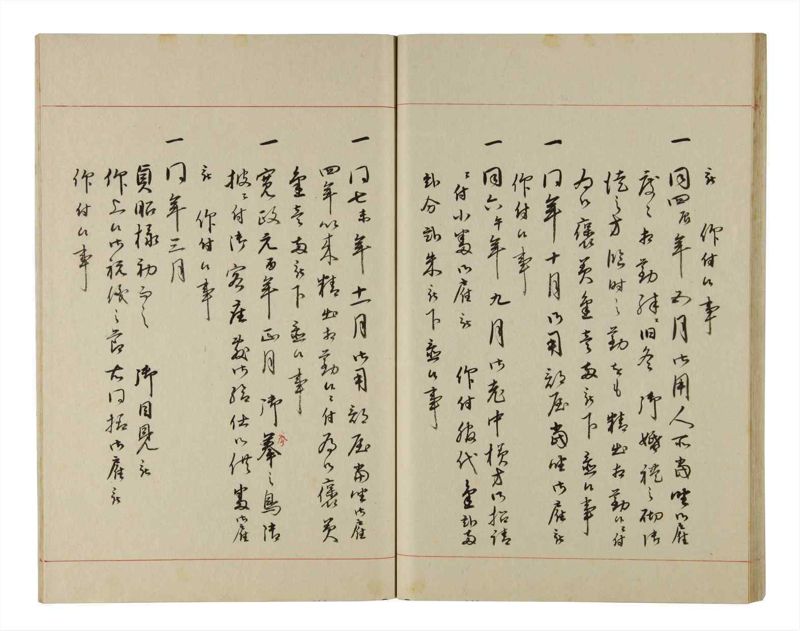 被 仰付候事
一 同四辰年五月御用人所當座御雇
度々相勤殊ニ旧冬 御婚礼之砌諸
之方臨時之勤等も精出相勤候ニ付
為御褒美金壱両被下置候事
一 同年十月御用部屋當座御雇被
仰付候事
一 同六午年九月御老中様方御招請
ニ付小 御雇被 仰付 代金弐両
弐分弐朱被下置候事
一 同七未年十一月御用部屋當座御雇
四年以来精出相勤候ニ付為御褒美
金壱両被下置候事
一 寛政元酉年正月 御拳之鳥御
披ニ付御客座敷御給仕御供 御雇
被 仰付候事
一 同年三月
貞昭様初而之 御目見被
仰上候御祝儀之節大 御雇被
仰付候事